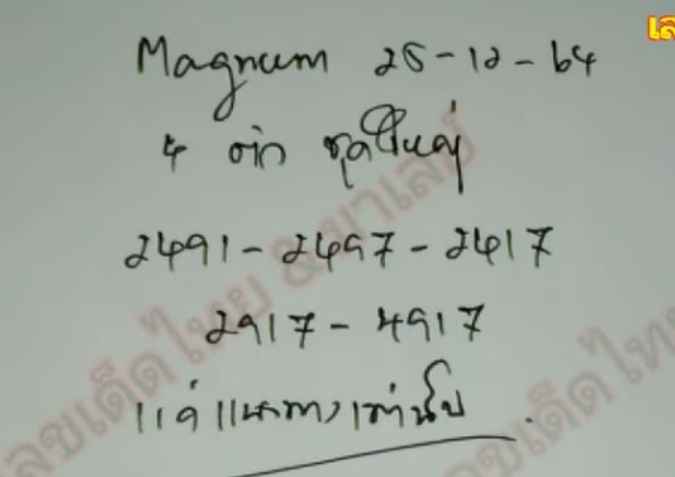 Magnum 25-12-64
4 ตัว ชุดใหญ่
2491 - 2497 - 2417
2917 - 4917
แค่แนวทางเท่านั้น
เลขเด็ดไทย & มาเลย์